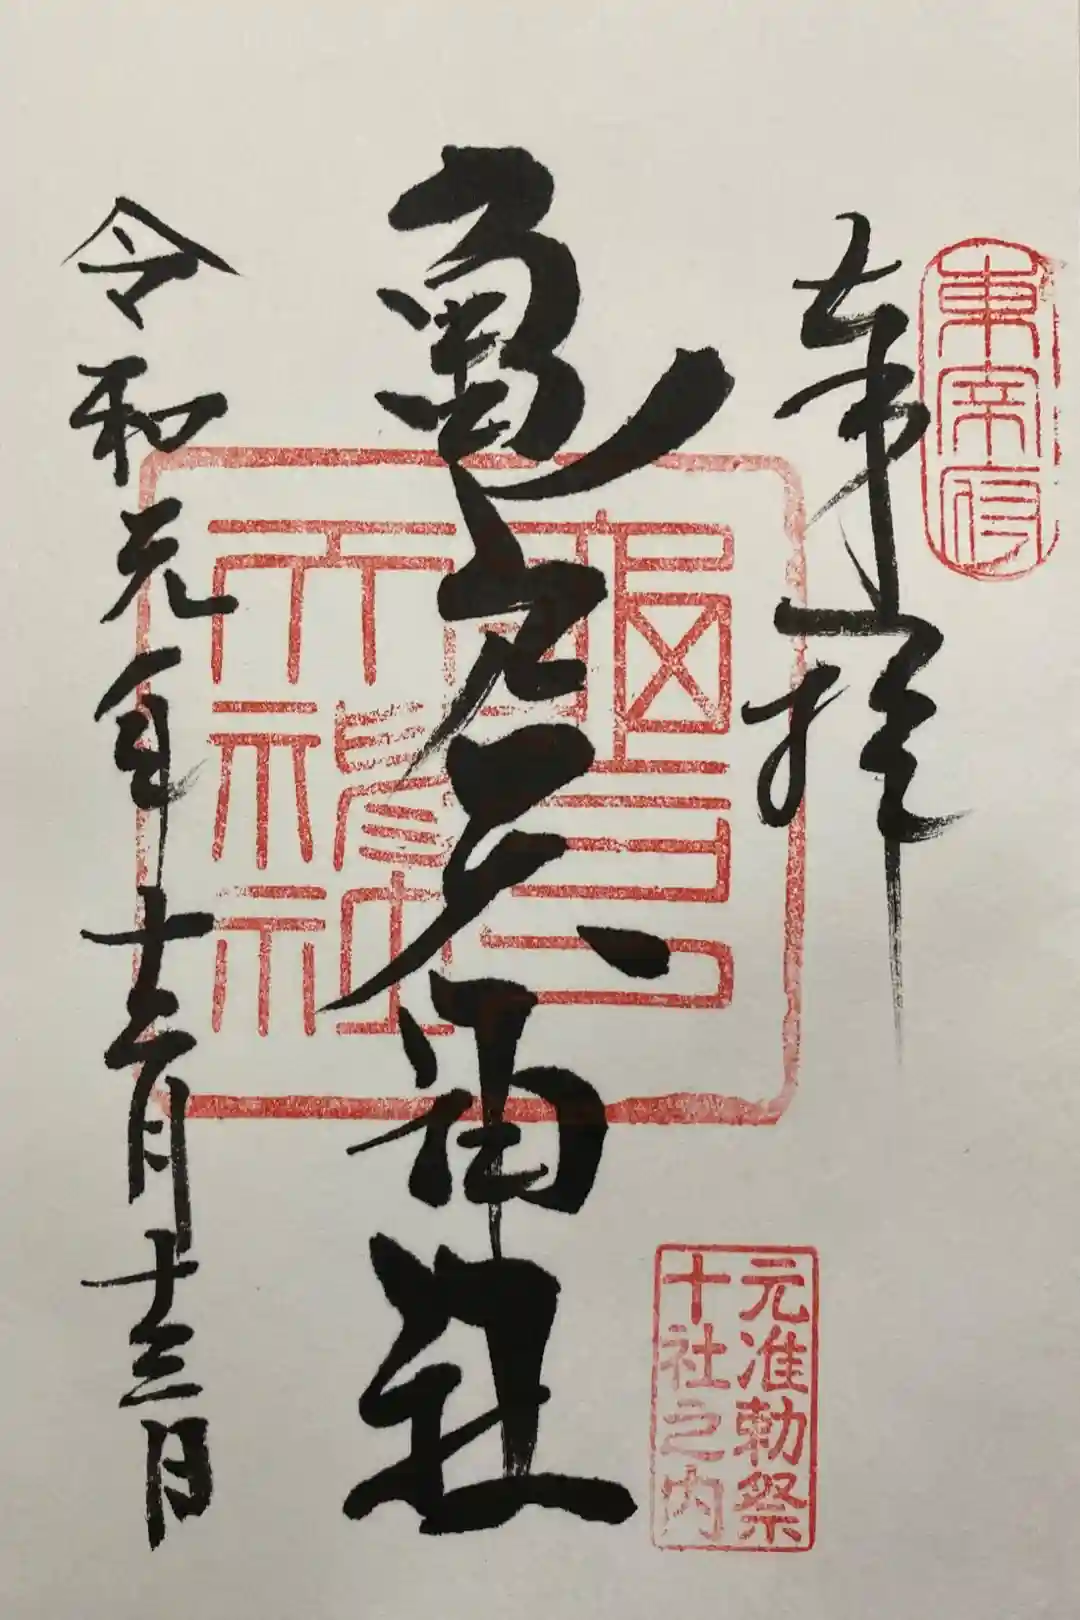 東宰府
奉拝
亀戸天神社
令和元年十二月十三日
亀戸
天神社
元准勅祭
十社之内